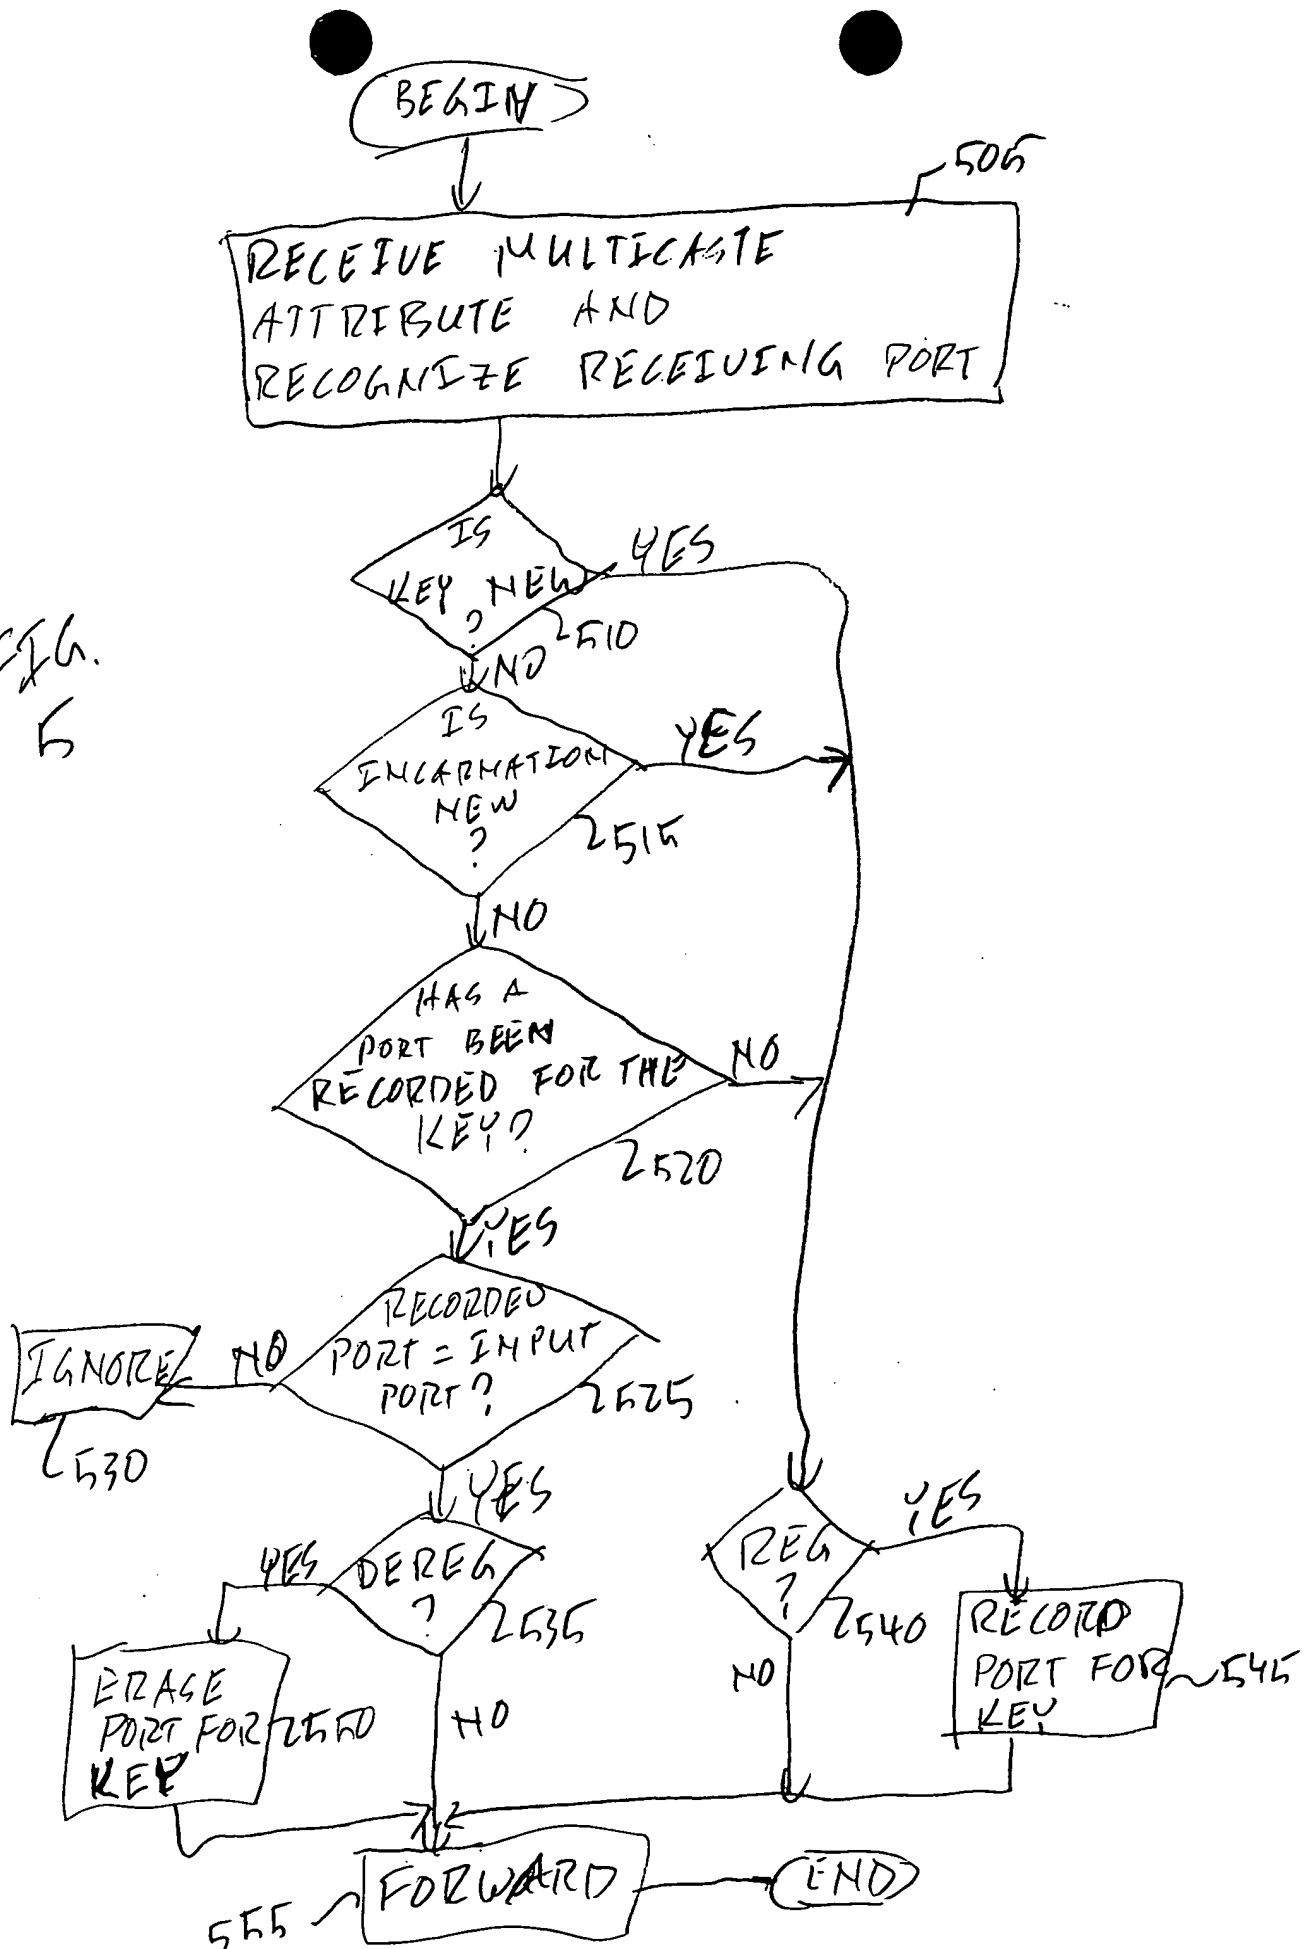 BEGIN
505
RECEIVE MULTICASTE
ATTRIBUTE AND
RECOGNIZE RECEIVING PORT
IS
KEY NEW
?
YES
510
NO
FIG.
5
IS
INCARNATION
NEW
?
YES
515
NO
HAS A
PORT BEEN
RECORDED FOR THE
KEY?
NO
520
YES
RECORDED
PORT = INPUT
PORT?
525
NO
IGNORE
530
YES
DEREG
?
535
YES
ERASE
PORT FOR
KEY
550
NO
REG
?
540
YES
RECORD
PORT FOR
KEY
545
NO
FORWARD
555
END